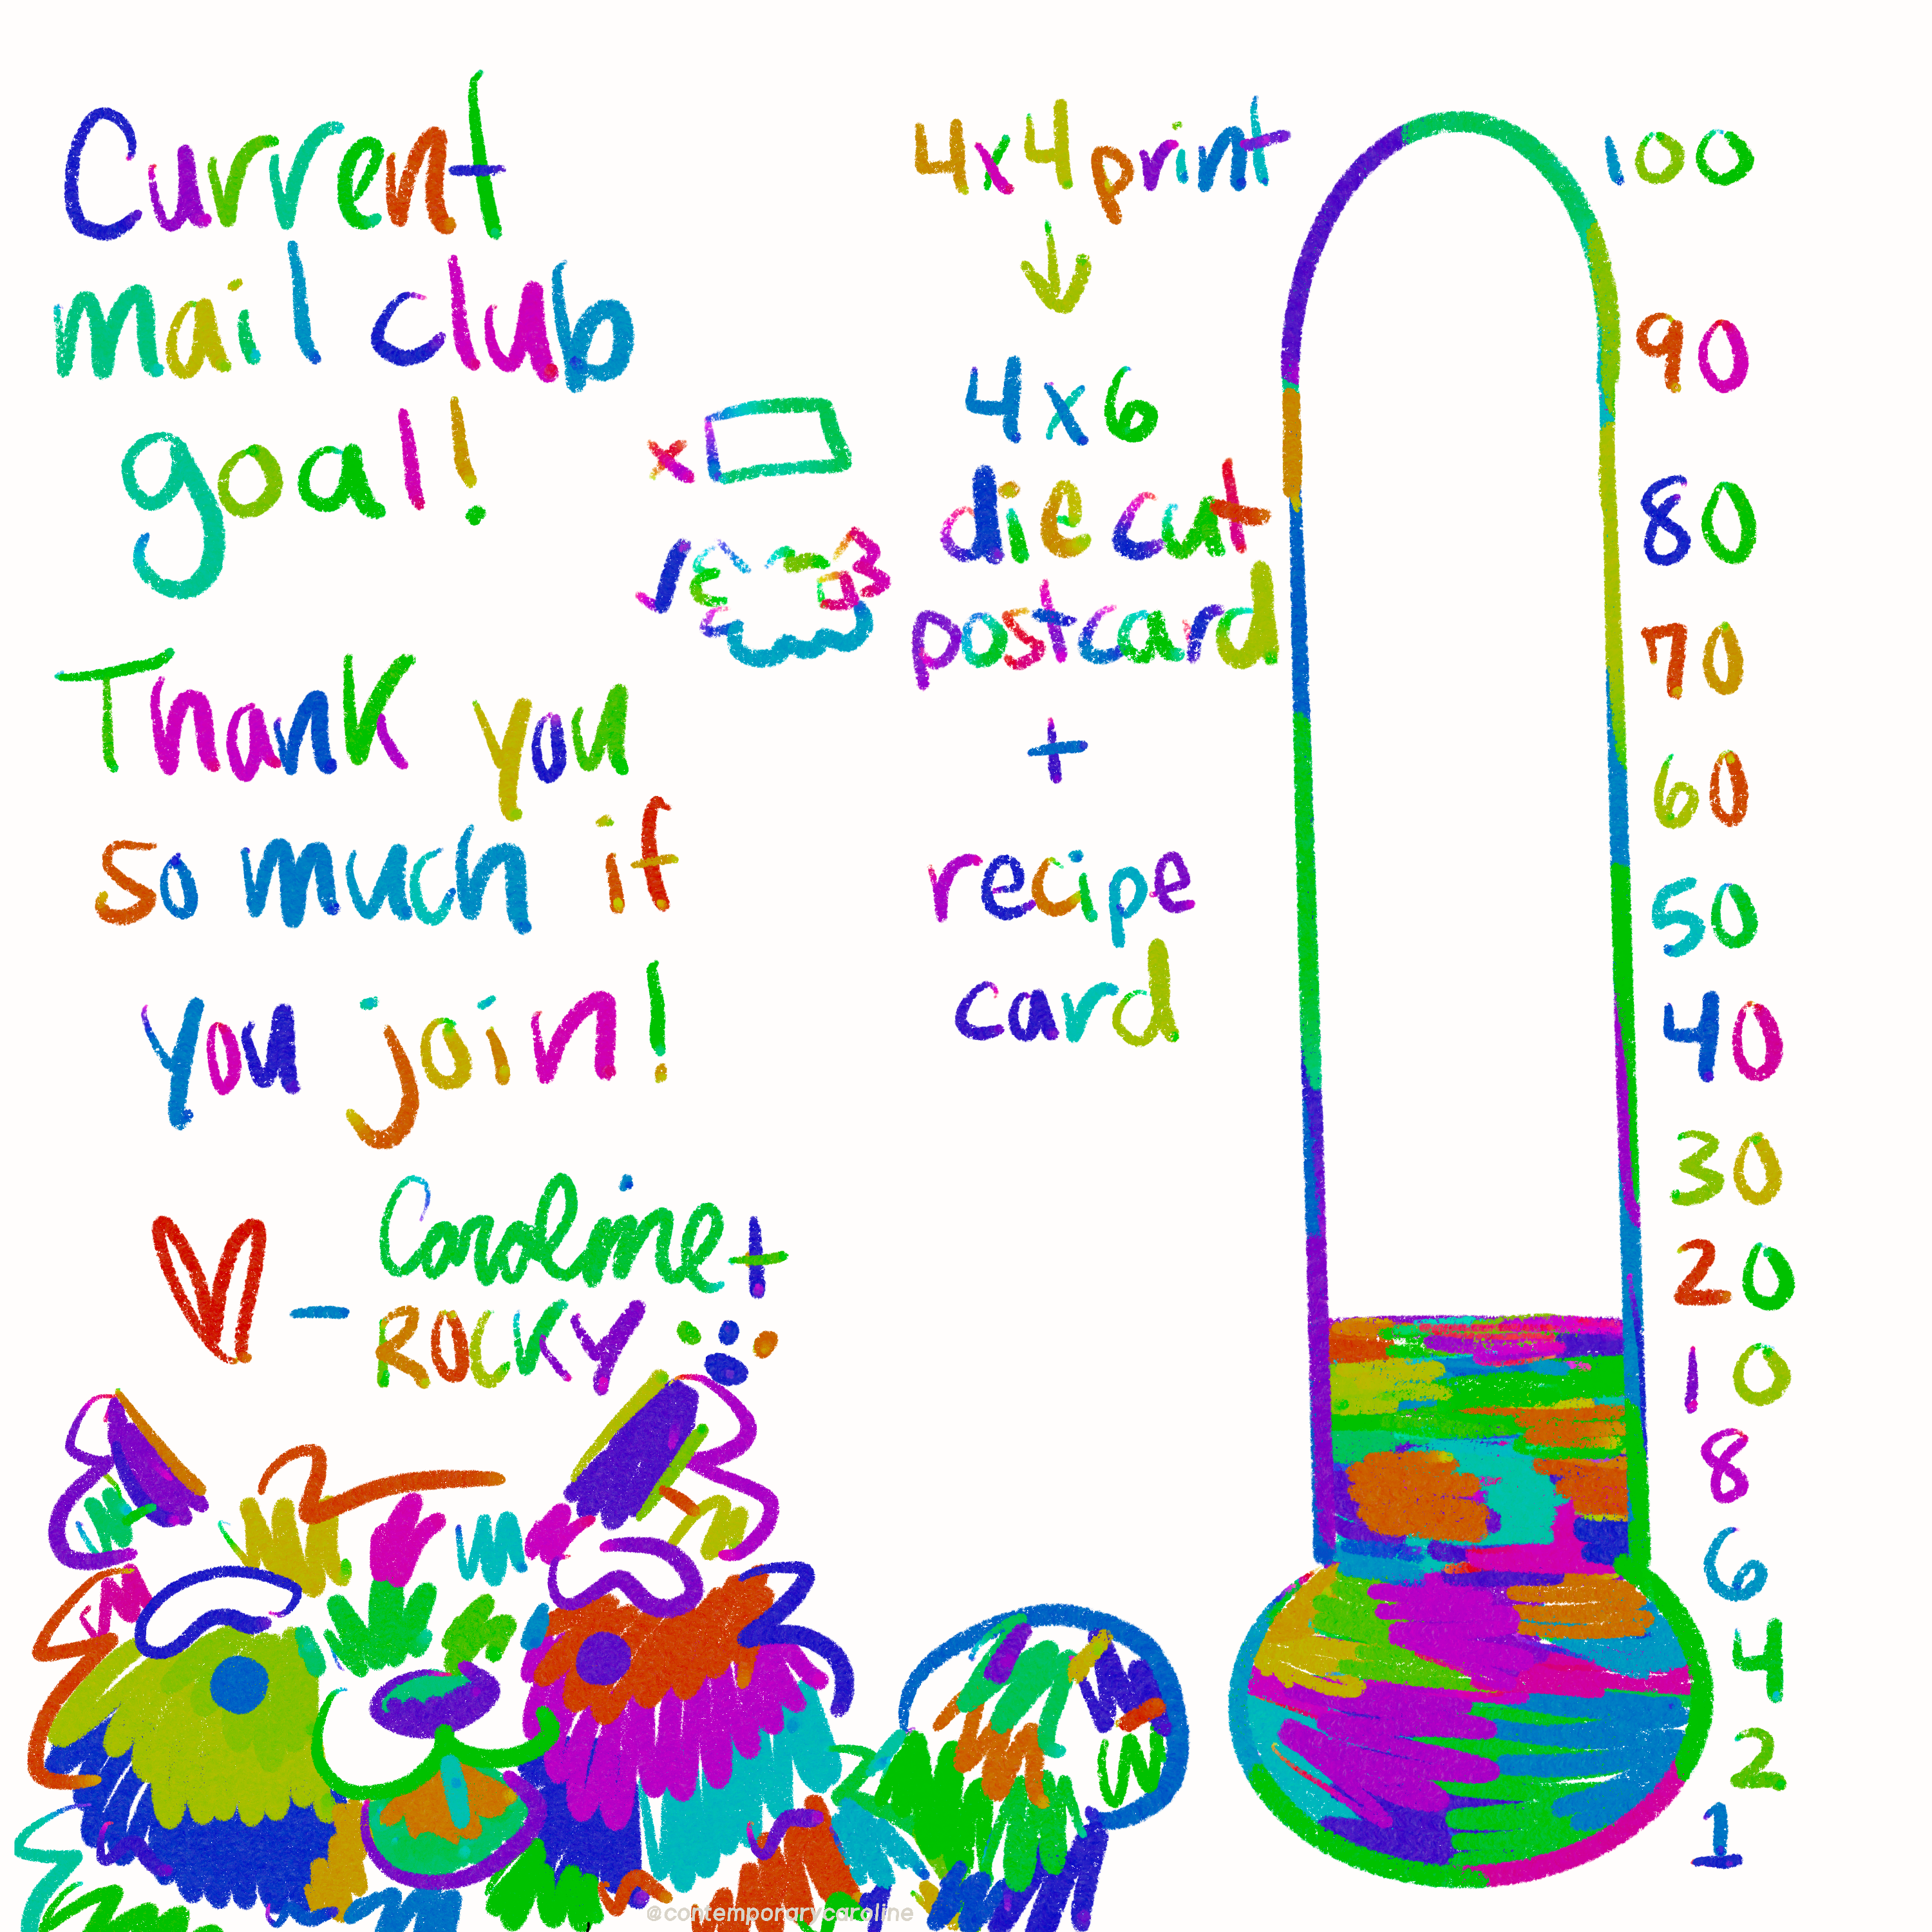 Current
mail club
goal!
Thank you
so much if
you join!
- Caroline +
ROCKY
4x4 print
4x6
die cut
postcard
+
recipe
card
100
90
80
70
60
50
40
30
20
10
8
6
4
2
1
@contemporarycaroline